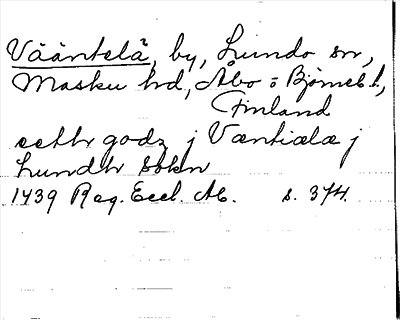 Vääntelä, by, Lundo sn,
Masku hd, Åbo o Björneb. l.,
Finland
eetth godz j Væntiælæ j
Lundh sokn
1439 Reg. Eccl. Ab. s. 374.